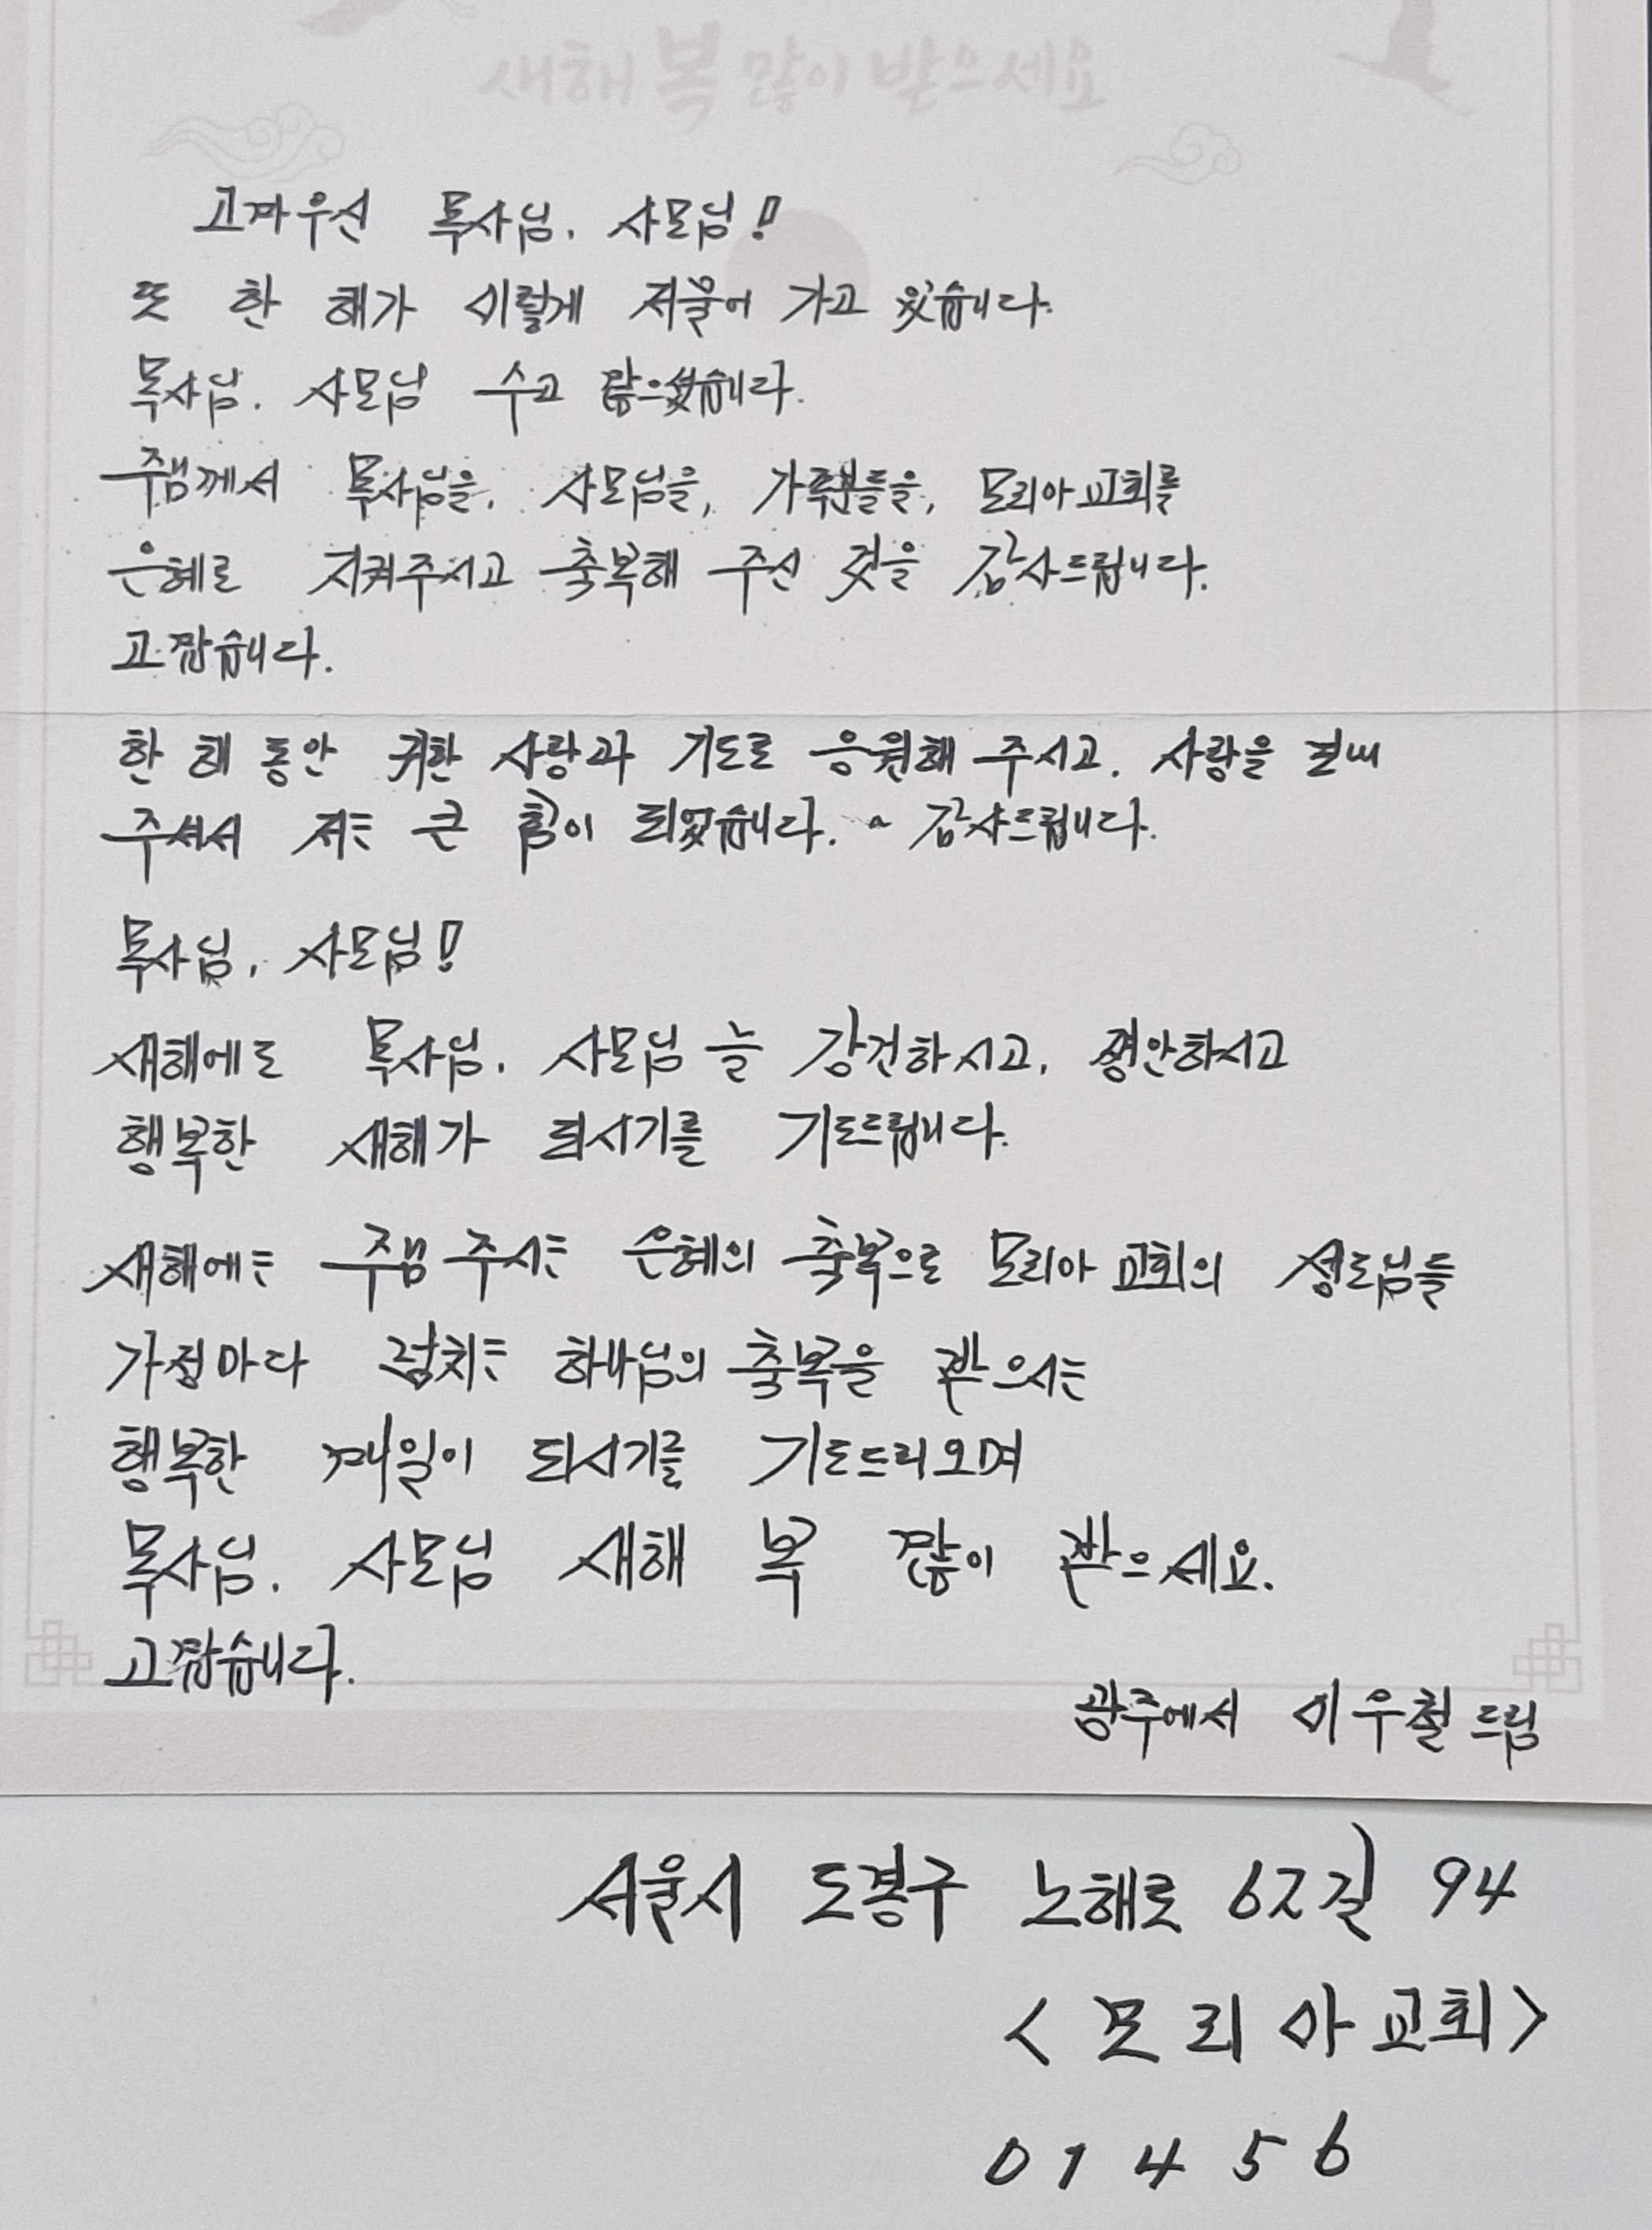 새해 복 많이 받으세요
고마우신 목사님. 사모님!
또 한 해가 이렇게 저물어 가고 있습니다.
목사님. 사모님 수고 많으셨습니다.
주님께서 목사님을. 사모님을, 가족분들을, 모리아교회를
은혜로 지켜주시고 축복해 주신 것을 감사드립니다.
고맙습니다.
한 해 동안 귀한 사랑과 기도로 응원해 주시고. 사랑을
주셔서 저는 큰 힘이 되었습니다. 감사드립니다.
목사님. 사모님!
새해에도 목사님. 사모님 늘 강건하시고. 평안하시고
행복한 새해가 되시기를 기도드립니다.
새해에는 주님 주시는 은혜의 축복으로 모리아 교회의 성도님들
가정마다 넘치는 하나님의 축복을 받으시는
행복한 매일이 되시기를 기도드리오며
목사님. 사모님 새해 복 많이 받으세요.
고맙습니다.
광주에서 이우철 드림
서울시 도봉구 노해로 62길 94
<모리아교회>
01456